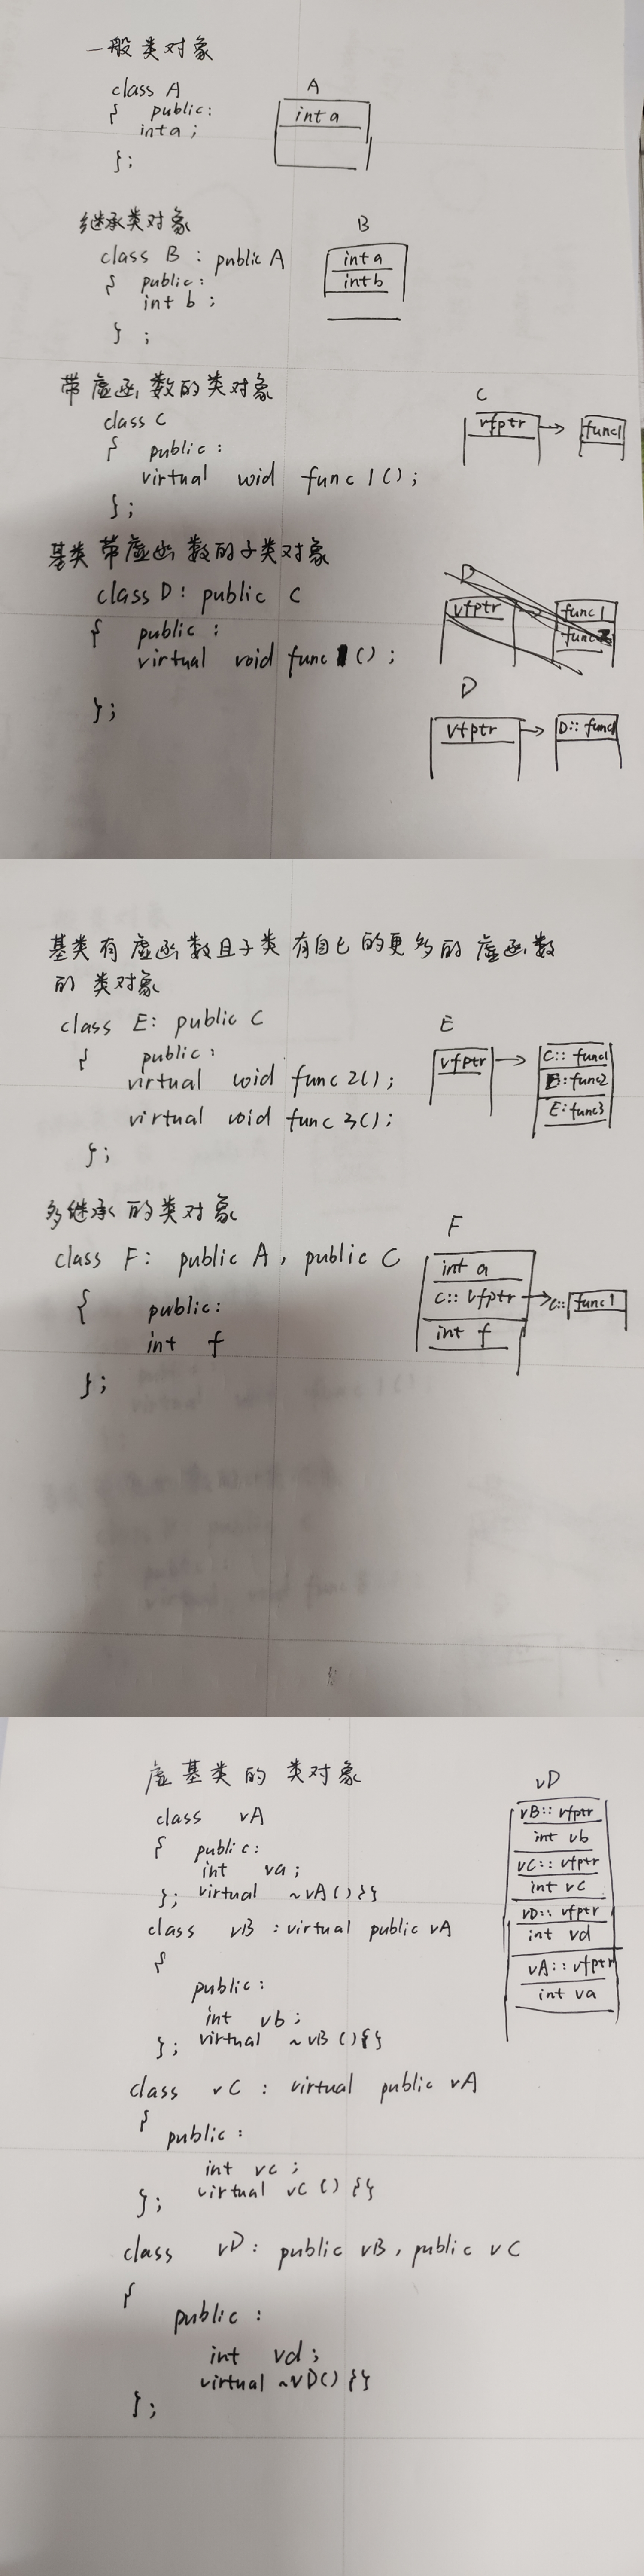 一般类对象
class A
{ public:
int a ;
};
A
int a
继承类对象
class B : public A
{ public:
int b ;
} ;
B
int a
int b
带虚函数的类对象
class C
{ public :
virtual void func 1 ( ) ;
};
C
vfptr
func1
基类带虚函数的子类对象
class D : public C
{ public :
virtual void func 1 ( ) ;
};
D
vfptr
func 1
func 2
D
vfptr
D:: func1
基类有虚函数且子类有自己的更多的虚函数
的类对象
class E: public C
{ public:
virtual void func 2( ) ;
virtual void func 3( ) ;
};
E
vfptr
C:: func1
E:: func2
E: func3
多继承的类对象
class F: public A, public C
{ public:
int f
};
F
int a
C:: vfptr
int f
C::
func 1
虚基类的类对象
class vA
{ public:
int va ;
}; virtual ~vA ( ) { }
class vB : virtual public vA
{
public:
int vb ;
}; virtual ~vB ( ) { }
class vC : virtual public vA
{ public :
int vc ;
}; virtual vC ( ) { }
class vD : public vB, public vC
{
public :
int vd ;
virtual ~vD( ) { }
};
vD
vB:: vfptr
int vb
vC:: vfptr
int vc
vD:: vfptr
int vd
vA:: vfptr
int va